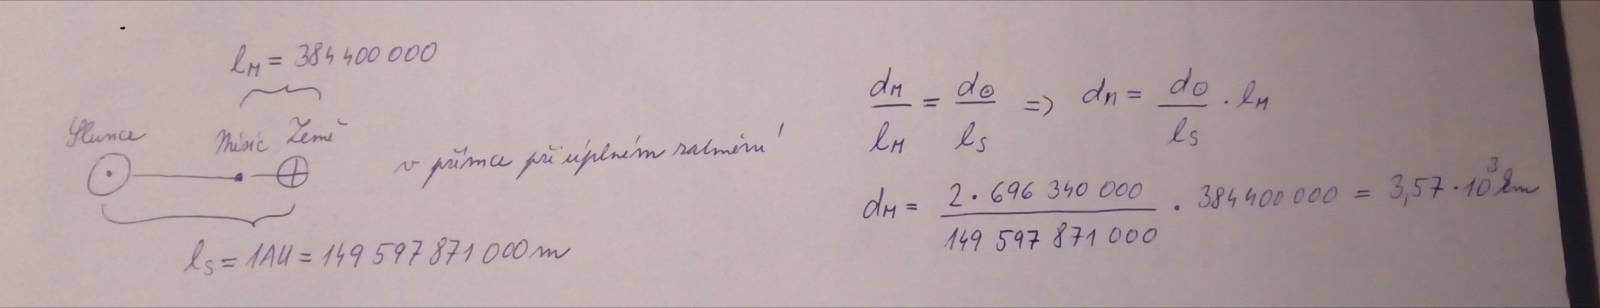 l_M = 384 400 000
Slunce Měsíc Země
v přímce při úplném zatmění
l_S = 1AU = 149 597 871 000 m
d_M / l_M = d_⊙ / l_S => d_M = d_⊙ / l_S · l_M
d_M = 2 · 696 340 000 / 149 597 871 000 · 384 400 000 = 3,57 · 10³ km